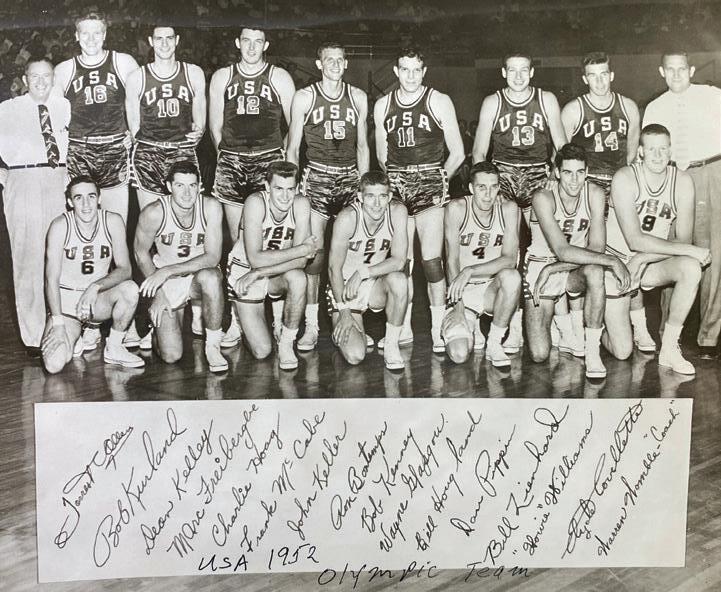 USA 16
USA 10
USA 12
USA 15
USA 11
USA 13
USA 14
USA 6
USA 3
USA 5
USA 7
USA 4
USA
USA 9
Forrest Allen
Bob Kurland
Dean Kelley
Marc Freiberger
Charlie Hoag
Frank McCabe
John Keller
Ron Bontemps
Bob Kenney
Wayne Glasgow
Bill Hougland
Dan Pippin
Bill Lienhard
"Howie" Williams
Clyde Lovellette
Warren Womble "Coach"
USA 1952
Olympic Team